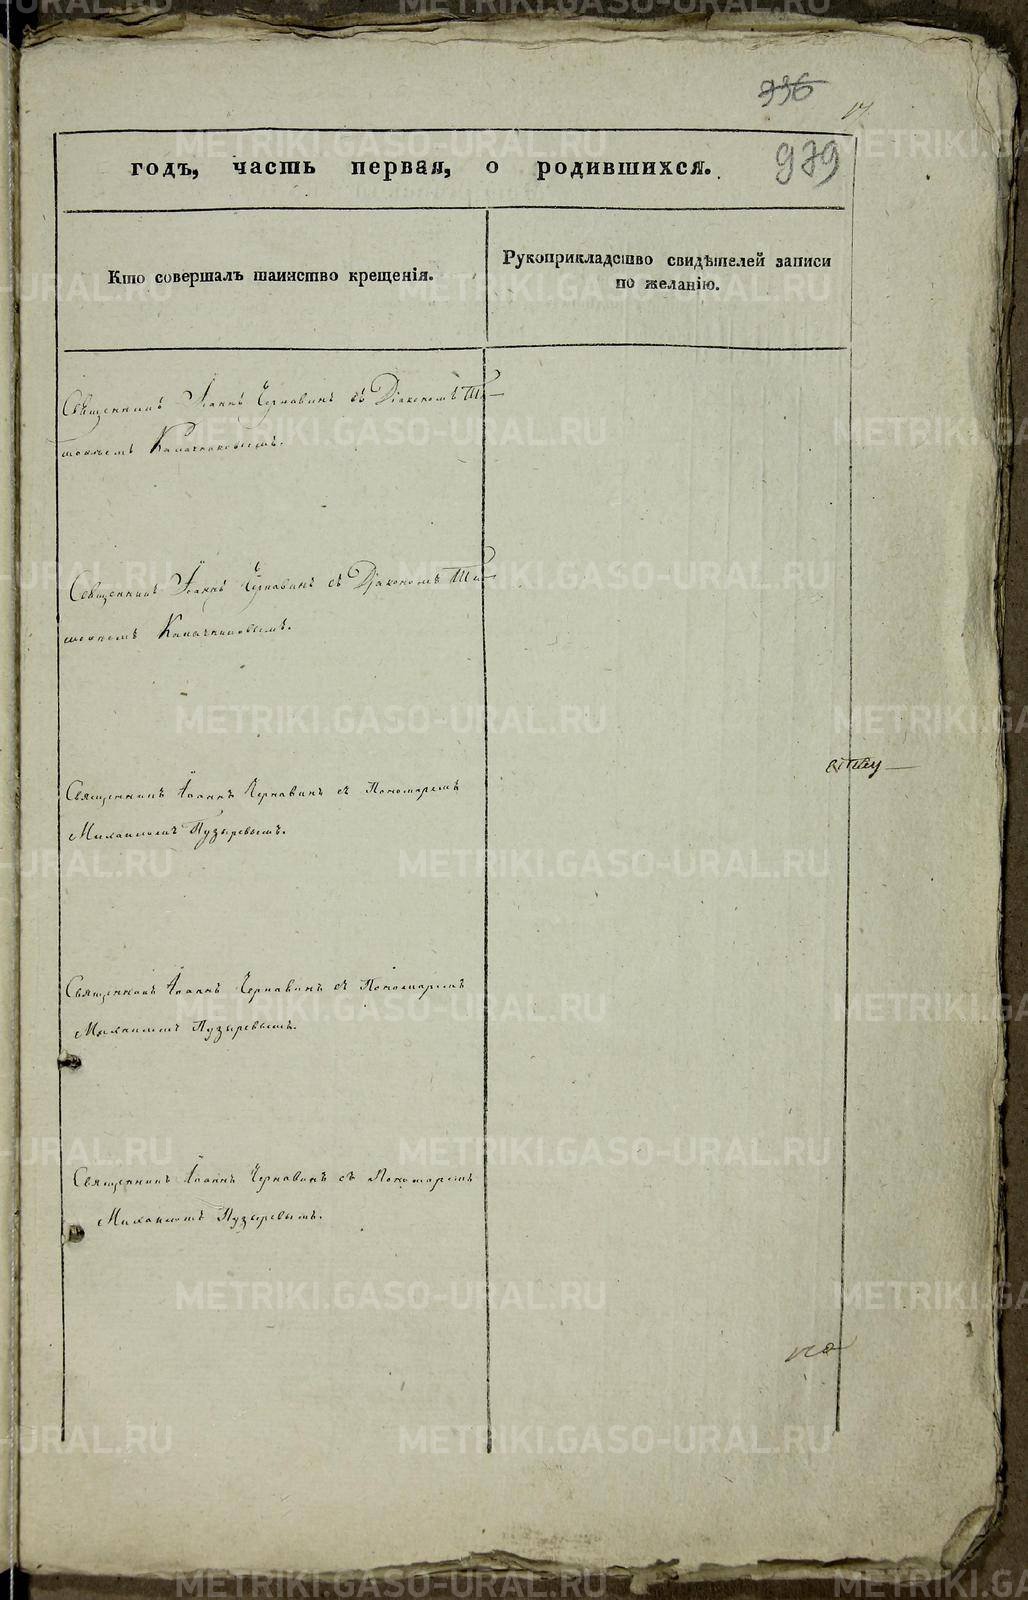 936
17
979
годъ, часть первая, о родившихся.
Кто совершалъ таинство крещенія.
Рукоприкладство свидѣтелей записи
по желанію.
Священникъ Іоаннъ Чернавинъ съ Діакономъ
Священникъ Іоаннъ Чернавинъ съ Діакономъ
Священникъ Іоаннъ Чернавинъ съ Пономаремъ
Михаиломъ Пузыревымъ.
Священникъ Іоаннъ Чернавинъ съ Пономаремъ
Михаиломъ Пузыревымъ.
Священникъ Іоаннъ Чернавинъ съ Пономаремъ
Михаиломъ Пузыревымъ.
METRIKI.GASO-URAL.RU